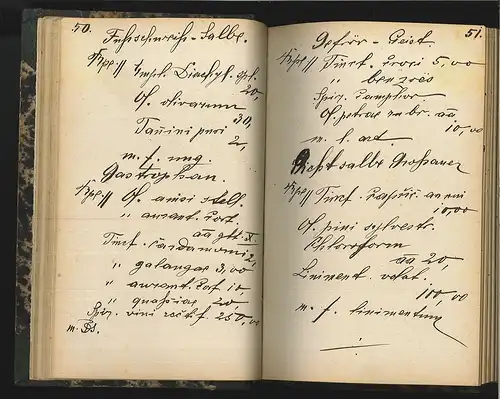 50.
Fußschweiß-Salbe.
Rpe // Empl. Diachyl. spl.
20,
Ol. olivarum
30,
Tanini puri
2,
m. f. ung.
Gastrophan.
Rpe // Ol. anisi stell.
" aurant. cort.
āā gtt. X.
Tinct. Cardamomi 2,
" galangae 3,00
" aurant. cort 10,
" quassiae 20
Spir. vini rectf. 250,00
m. Ds.
51.
Gefrör-Geist.
Rpe // Tinct. croci 5,00
" benzoes
Spir. camphor.
Ol. petrae rubr. āā
10,00
m. l. art.
Gichtsalbe Großauer
Rpe // Tinct. capsic. annui
10,00
Ol. pini sylvestr.
Chloroform
āā 20,
Liniment. volat.
100,00
m. f. linimentum